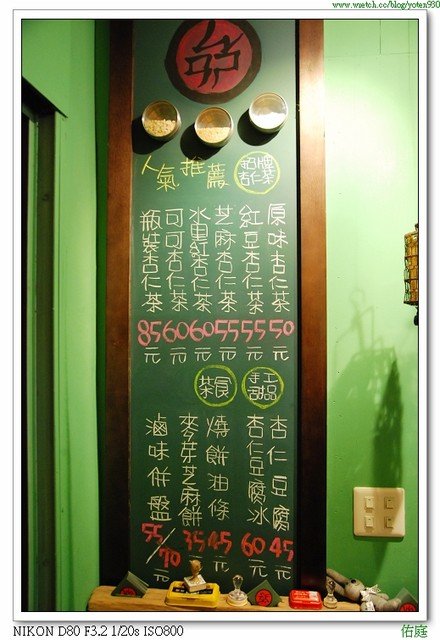 www.wretch.cc/blog/yoten930
人氣推薦
招牌杏仁茶
原味杏仁茶 50元
紅豆杏仁茶 55元
芝麻杏仁茶 55元
水果杏仁茶 60元
可可杏仁茶 60元
瓶裝杏仁茶 85元
手工甜品
茶食
杏仁豆腐 45元
杏仁豆腐冰 60元
燒餅油條 45元
麥芽芝麻餅 35元
滷味併盤 55/70元
NIKON D80 F3.2 1/20s ISO800
佑庭